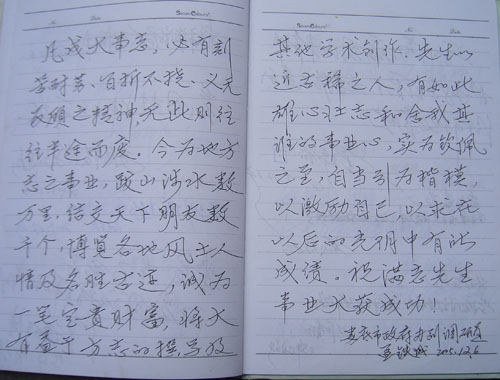 凡成大事志，必有刻
苦耐劳、百折不挠、义无
反顾之精神，无此则往
往半途而废。今为地方
志之事业，跋山涉水数
万里，结交天下朋友数
千个，博览各地风土人
情及名胜古迹，诚为
一笔宝贵财富，将大
有益于方志的撰写及
其他学术创作。先生以
近古稀之人，有如此
雄心壮志和舍我其
谁的事业心，实为钦佩
之至，自当引为楷模，
以激励自己，以求在
以后的光明中有所
成绩。祝满志先生
事业大获成功！
娄底市政府办列调研員
2015.12.6